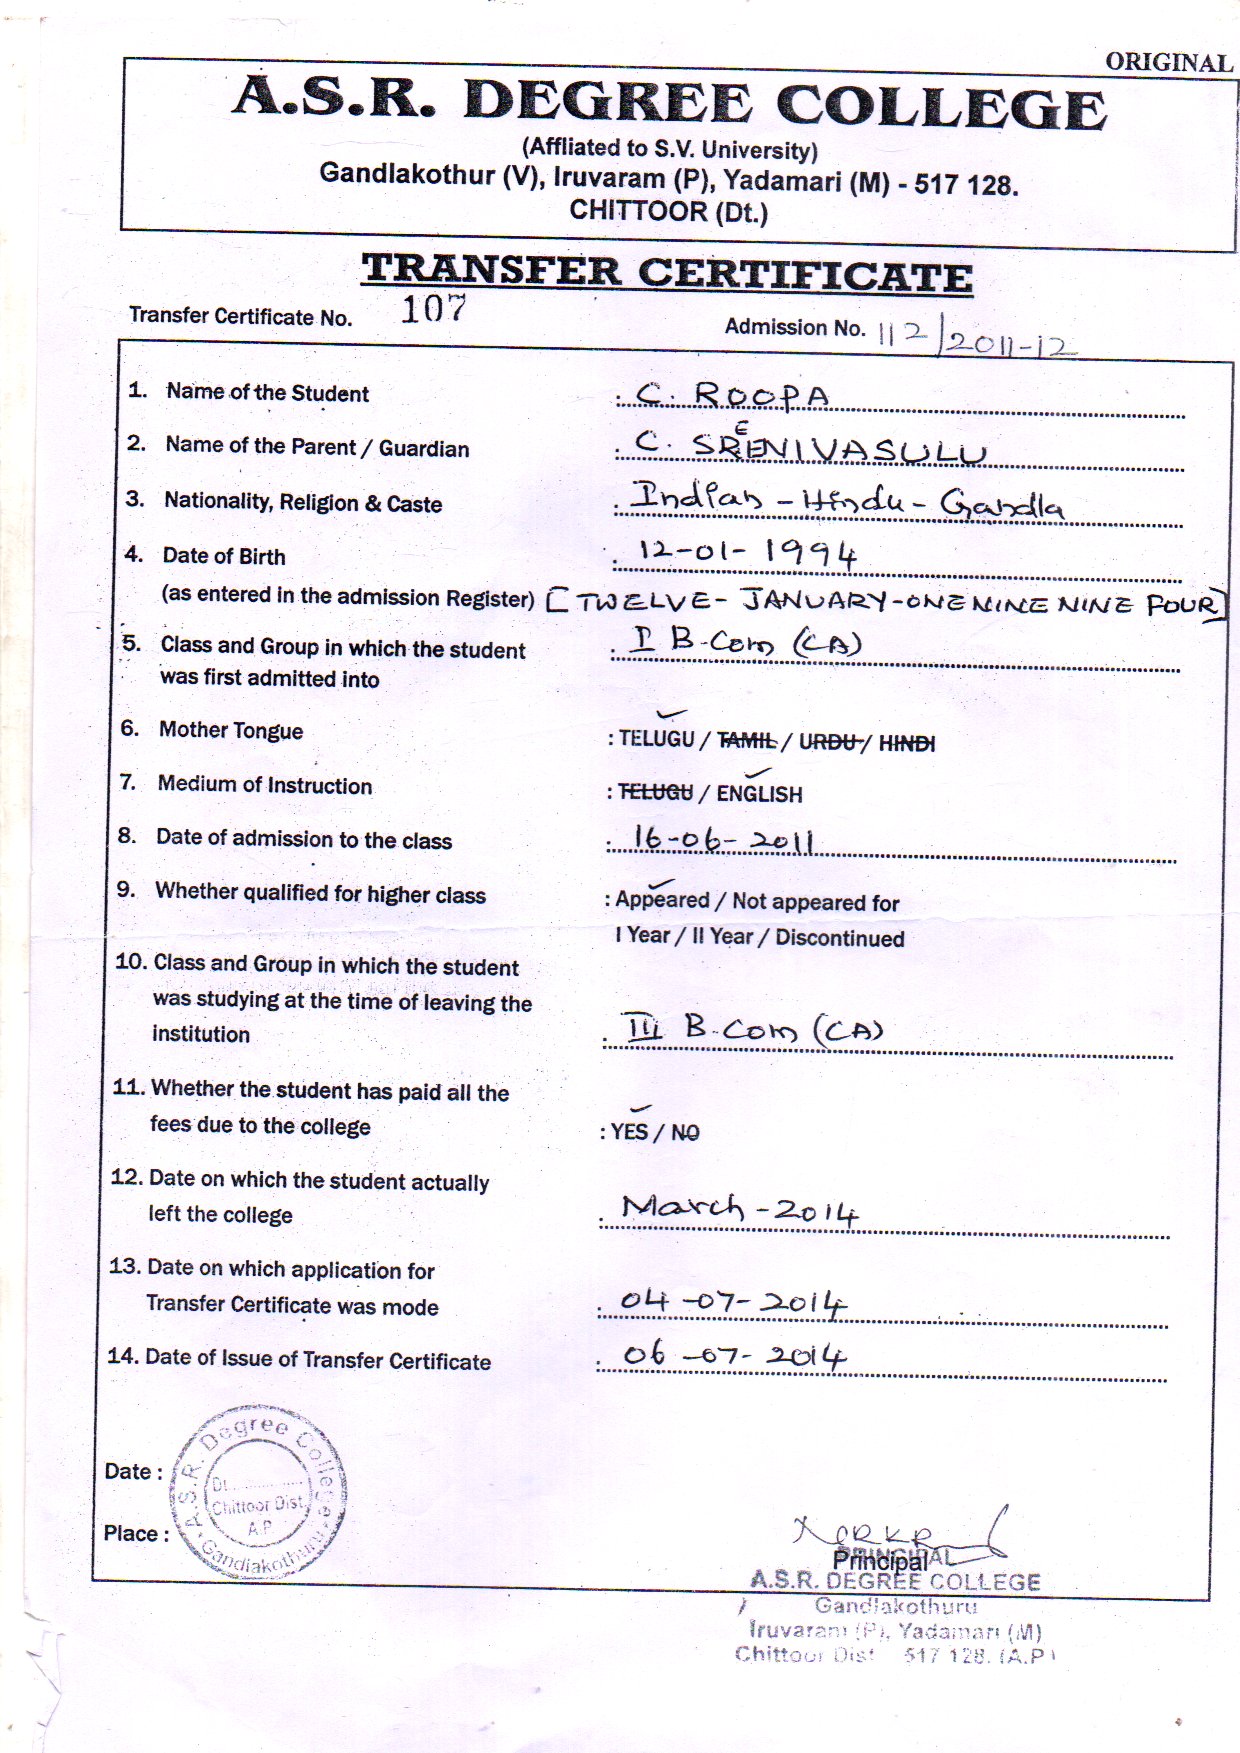 ORIGINAL
A.S.R. DEGREE COLLEGE
(Affliated to S.V. University)
Gandlakothur (V), Iruvaram (P), Yadamari (M) - 517 128.
CHITTOOR (Dt.)
TRANSFER CERTIFICATE
Transfer Certificate No. 107
Admission No. 112/2011-12
1. Name of the Student : C. ROOPA
2. Name of the Parent / Guardian : C. SREENIVASULU
3. Nationality, Religion & Caste : Indian - Hindu - Gandla
4. Date of Birth : 12-01-1994
(as entered in the admission Register) [TWELVE- JANUARY-ONE NINE NINE FOUR]
5. Class and Group in which the student : I B.Com (CA)
was first admitted into
6. Mother Tongue : TELUGU / TAMIL / URDU / HINDI
7. Medium of Instruction : TELUGU / ENGLISH
8. Date of admission to the class : 16-06-2011
9. Whether qualified for higher class : Appeared / Not appeared for
I Year / II Year / Discontinued
10. Class and Group in which the student
was studying at the time of leaving the
institution : III B.Com (CA)
11. Whether the student has paid all the
fees due to the college : YES / NO
12. Date on which the student actually
left the college : March - 2014
13. Date on which application for
Transfer Certificate was mode : 04-07-2014
14. Date of Issue of Transfer Certificate : 06-07-2014
Date :
Place :
A.S.R. Degree College
Dt.
Chittoor Dist.
A.P
Gandlakothuru
Principal
PRINCIPAL
A.S.R. DEGREE COLLEGE
Gandlakothuru
Iruvaram (P), Yadamari (M)
Chittoor Dist 517 128. (A.P)